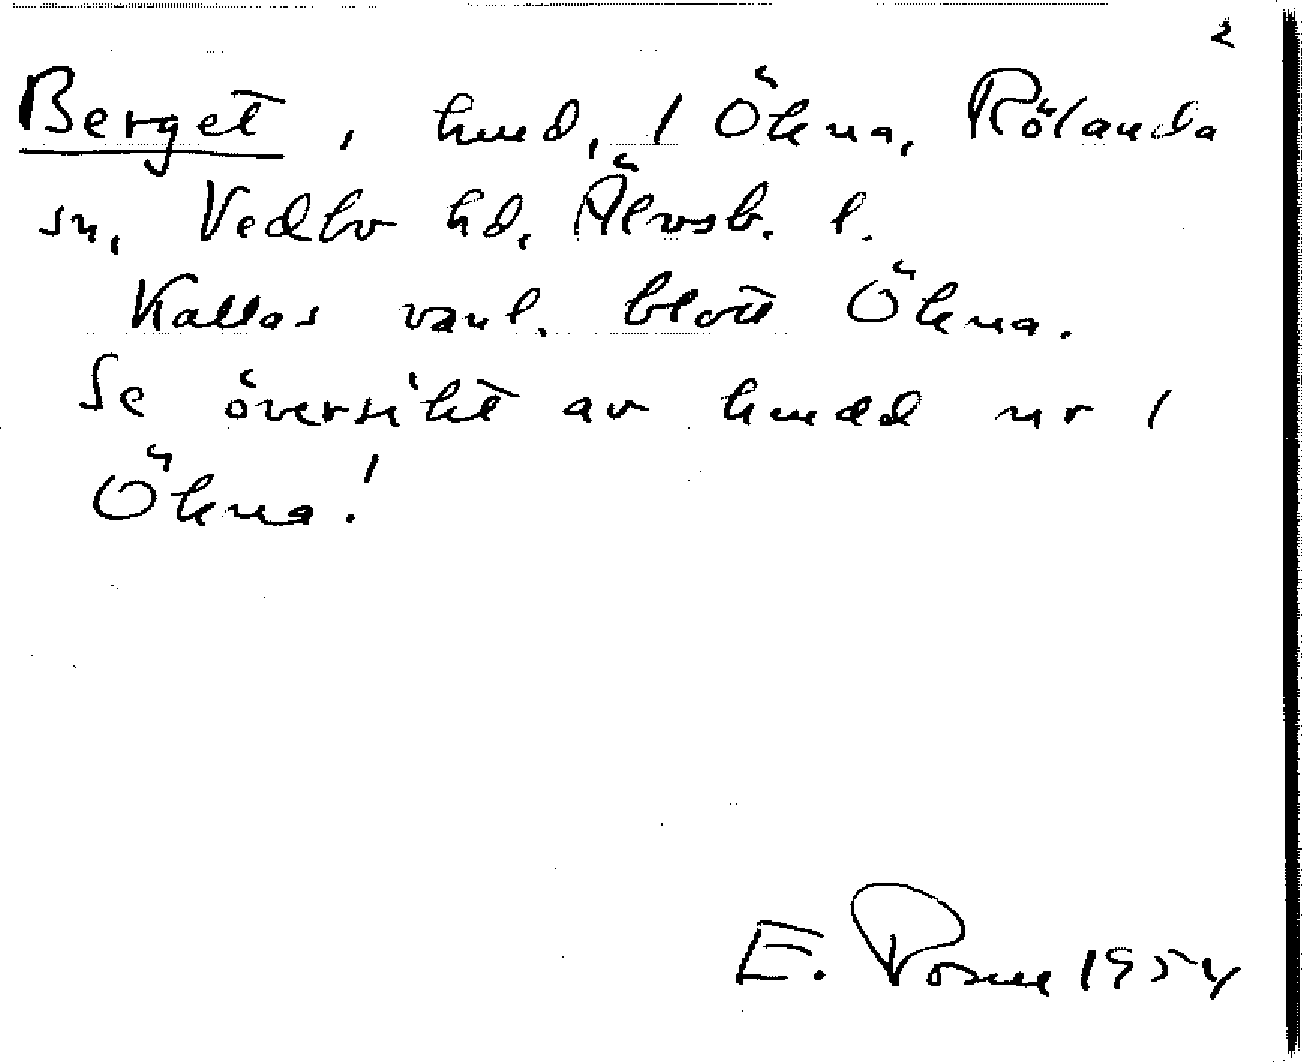 2
Berget, hmd, 1 Ökna, Rölanda
sn, Vedbo hd, Älvsb. l.
Kallas vanl. blott Ökna.
Se översikt av nr 1
Ökna!
E. 1954